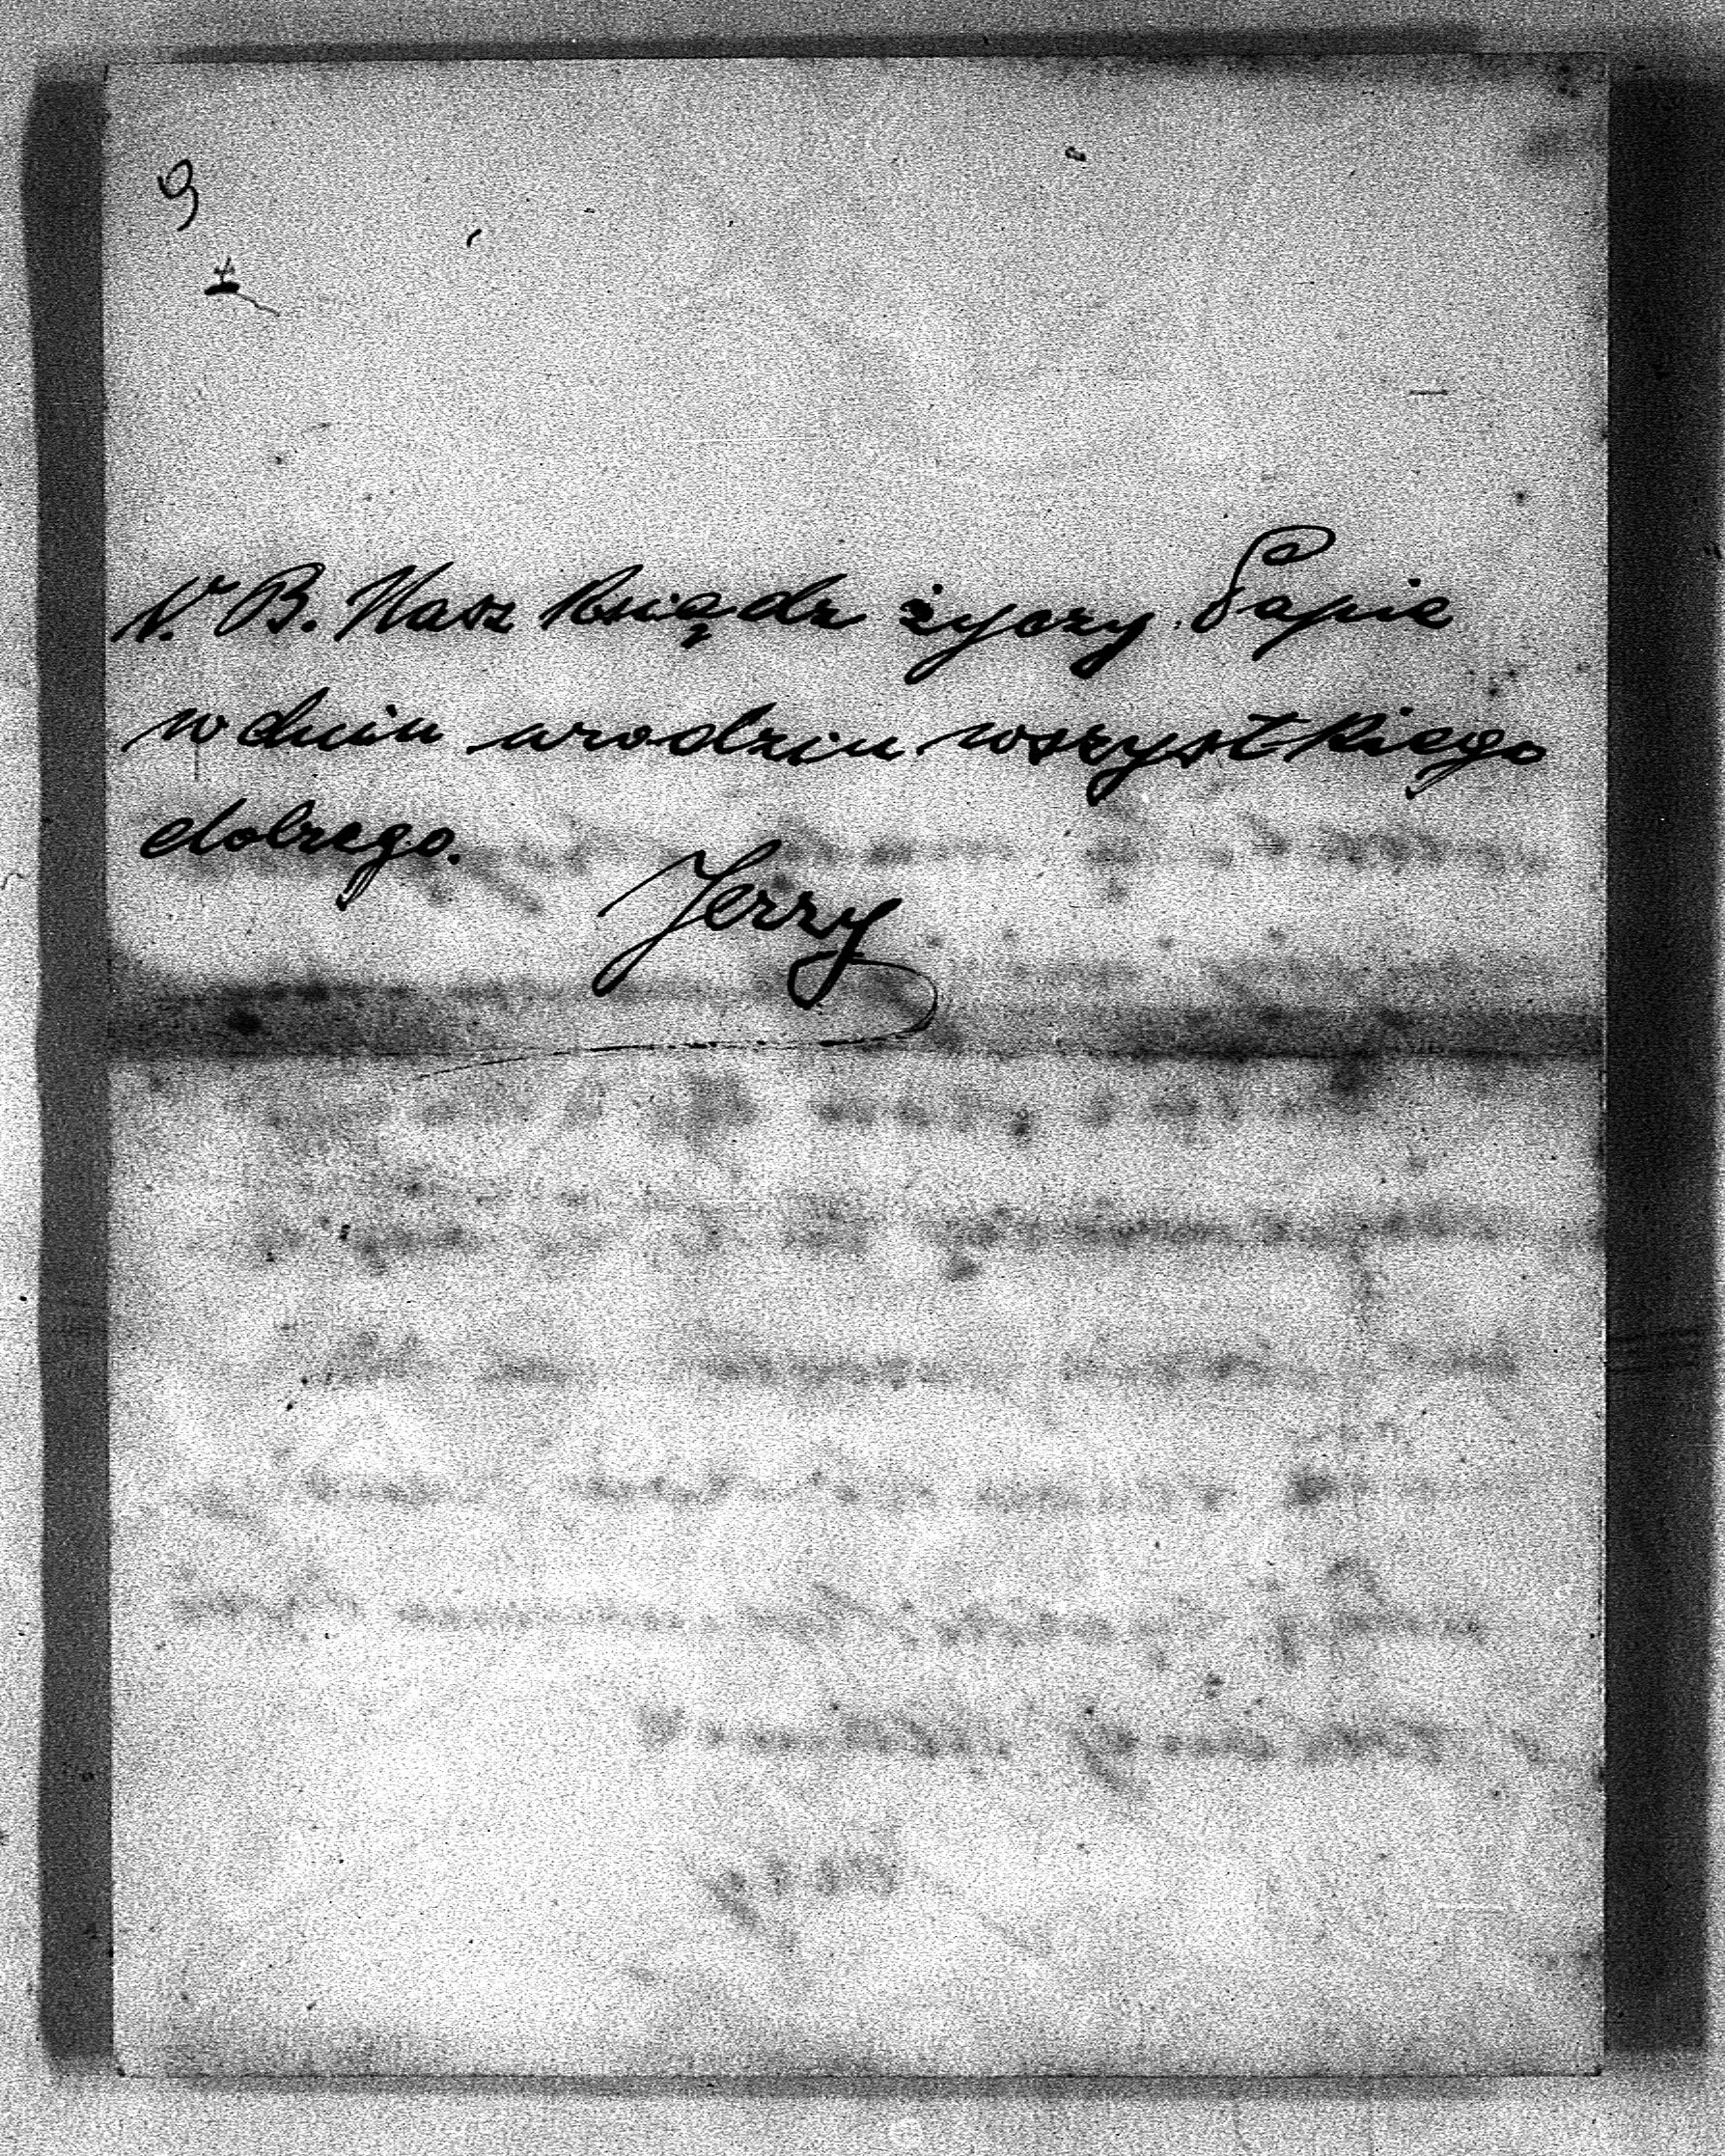 9
N.B. Nasz ksiądz życzy Papie
w dniu urodzin wszystkiego
dobrego.
Jerzy